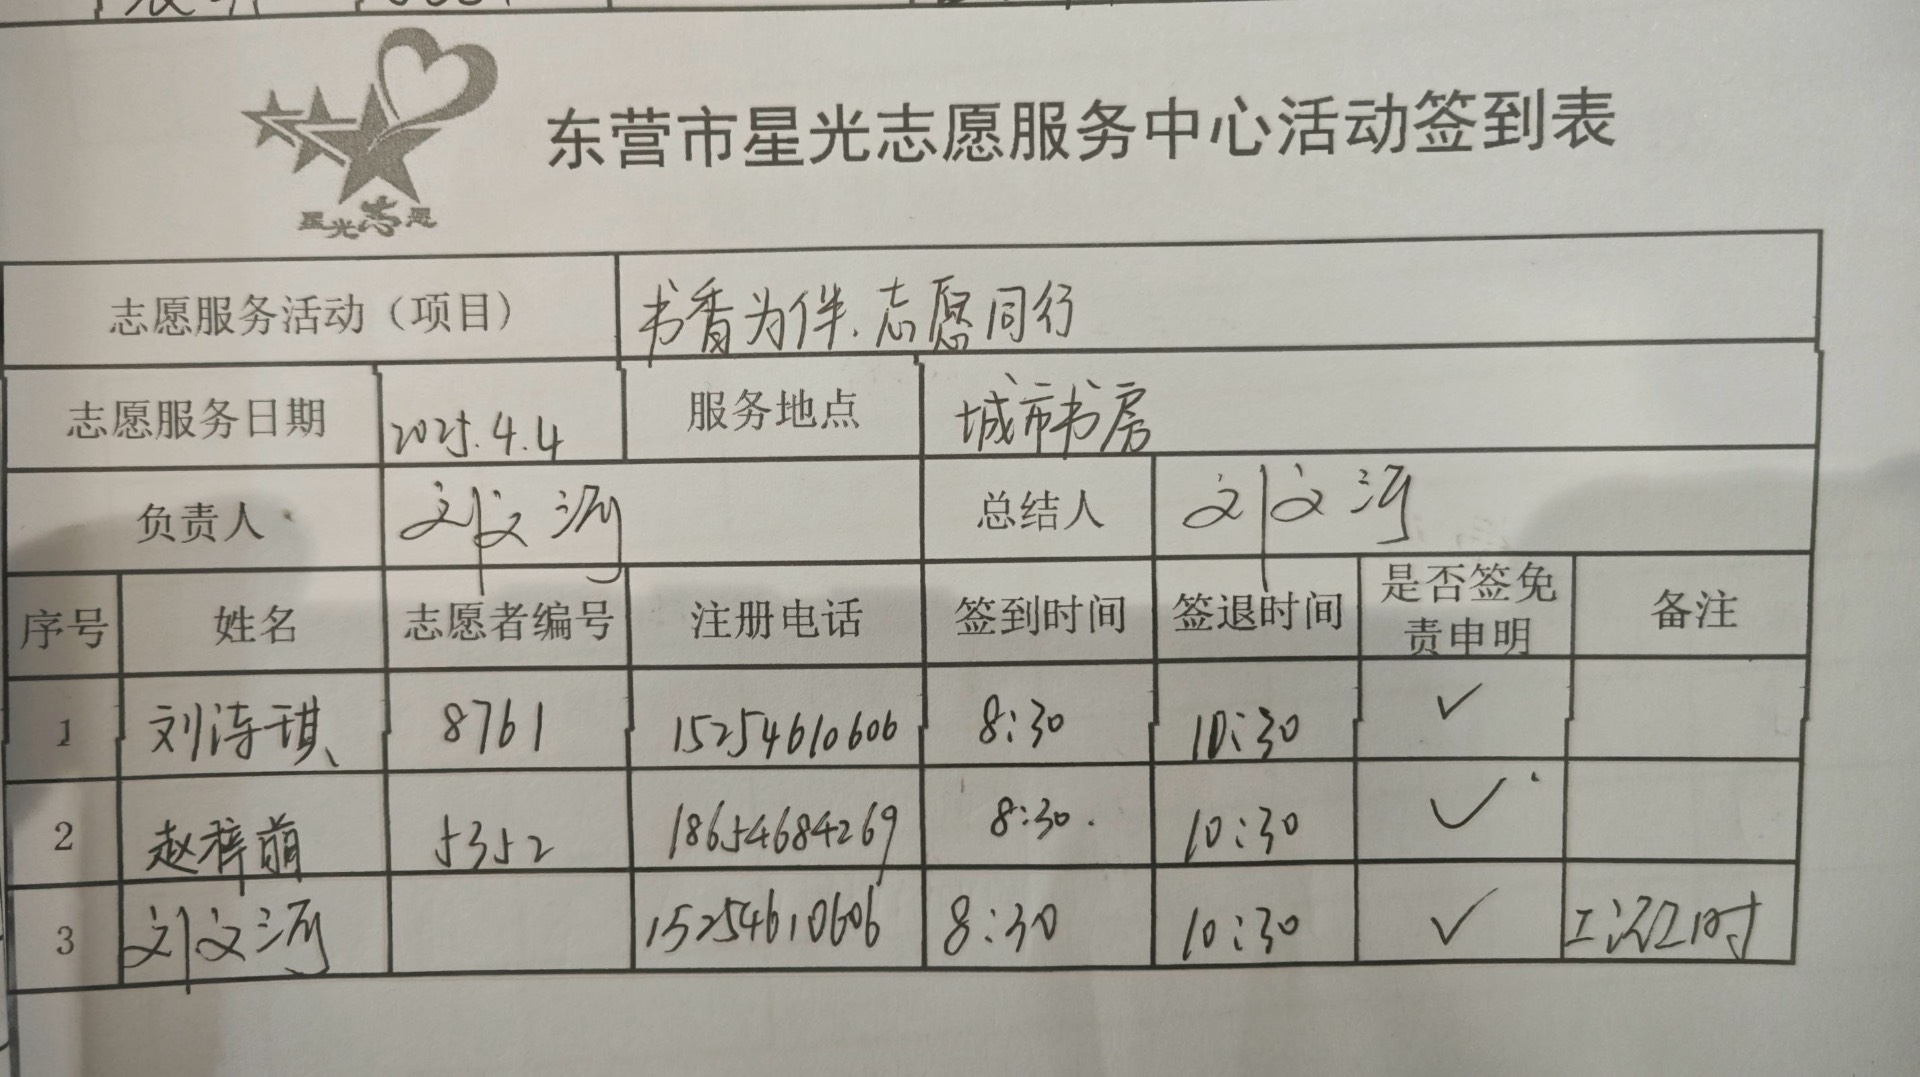 星光志愿
东营市星光志愿服务中心活动签到表
志愿服务活动（项目） 书香为伴.志愿同行
志愿服务日期 2025.4.4 服务地点 城市书房
负责人 刘文河 总结人 刘文河
序号 姓名 志愿者编号 注册电话 签到时间 签退时间 是否签免责申明 备注
1 刘涛琪 8761 15254610606 8:30 10:30 ✓
2 赵梓萌 5352 18654684269 8:30. 10:30 ✓
3 刘文河 15254610606 8:30 10:30 ✓